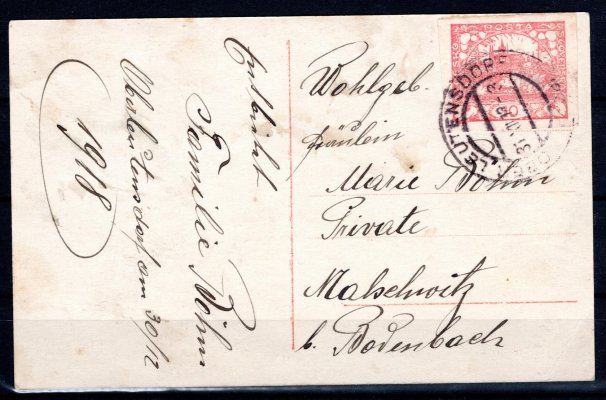 Entbietet
Familie Böhm
Oberleutensdorf am 30/12
1918
Wohlgeb.
Fräulein
Marie Böhm
Private
Malschwitz
b. Bodenbach
POŠTA
LEUTENSDORF